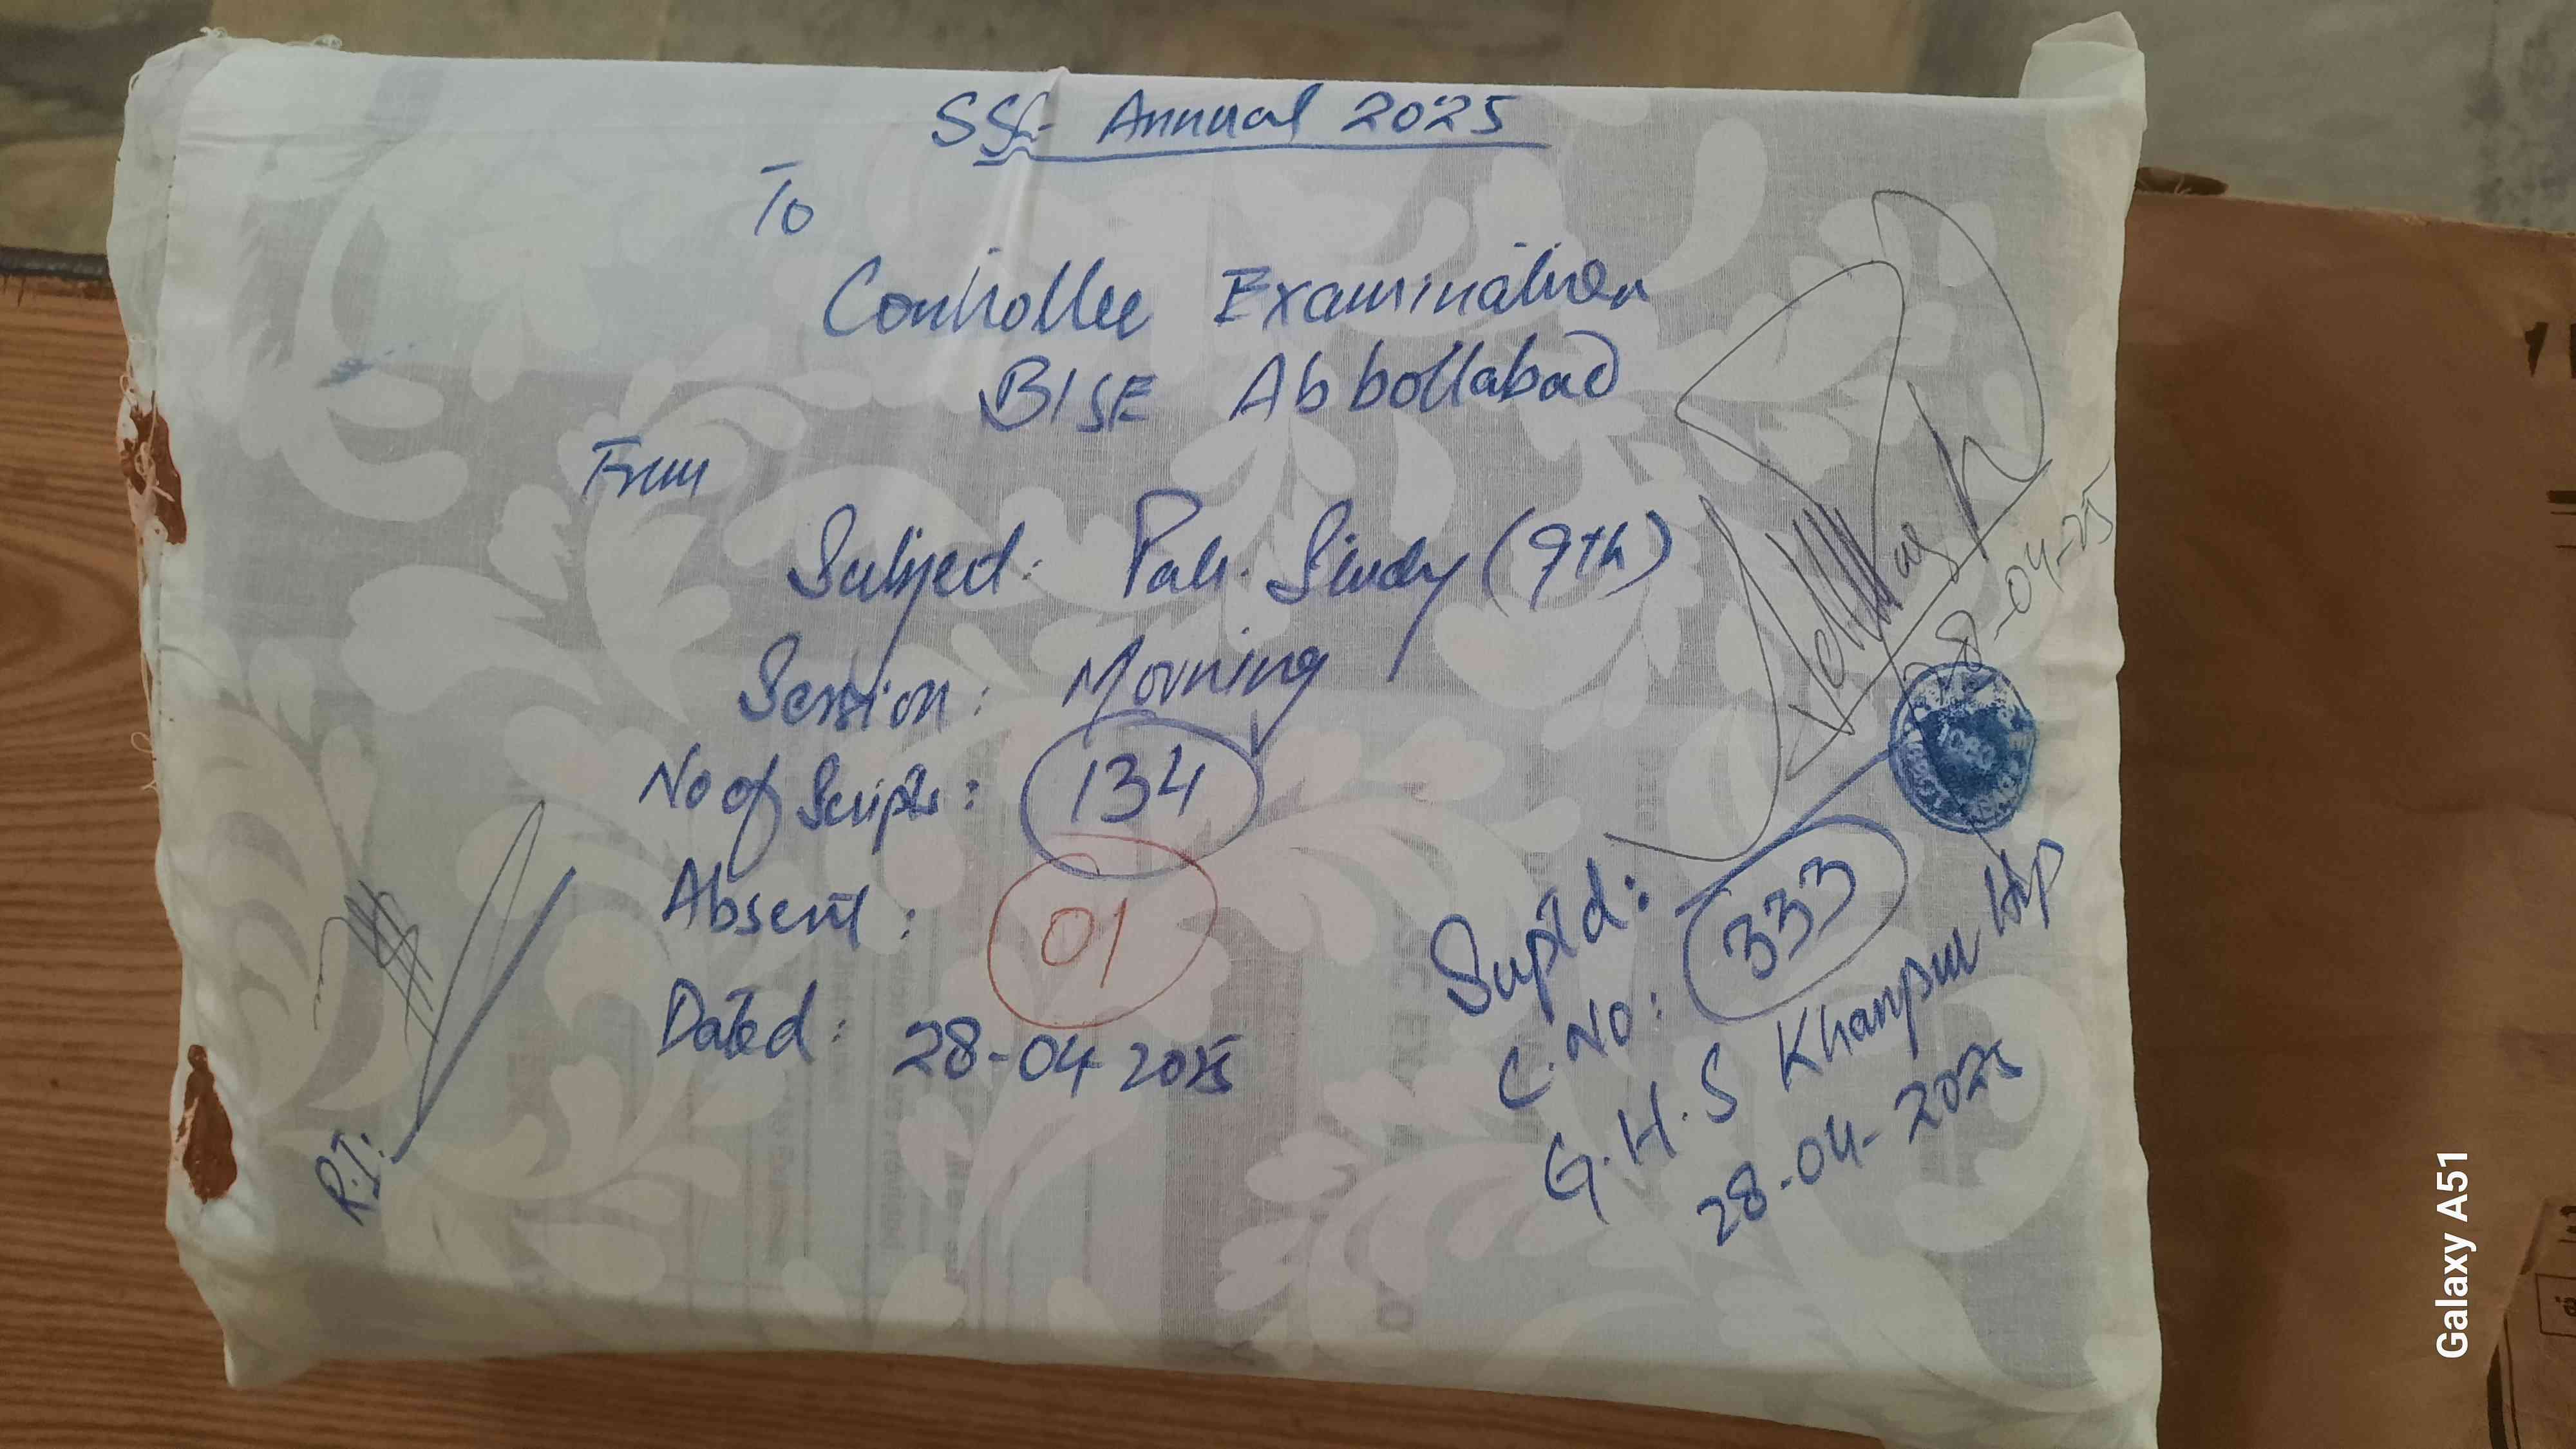 SSC Annual 2025
To
Controller Examination
BISE Abbottabad
From
Subject: Pak. Study (9th)
Session: Morning
No of Scripts: 134
Absent: 01
Dated: 28-04-2025
R.I:
28-04-25
Suptd:
C.No: 333
G.H.S Khanpur Hp
28-04-2025
Galaxy A51